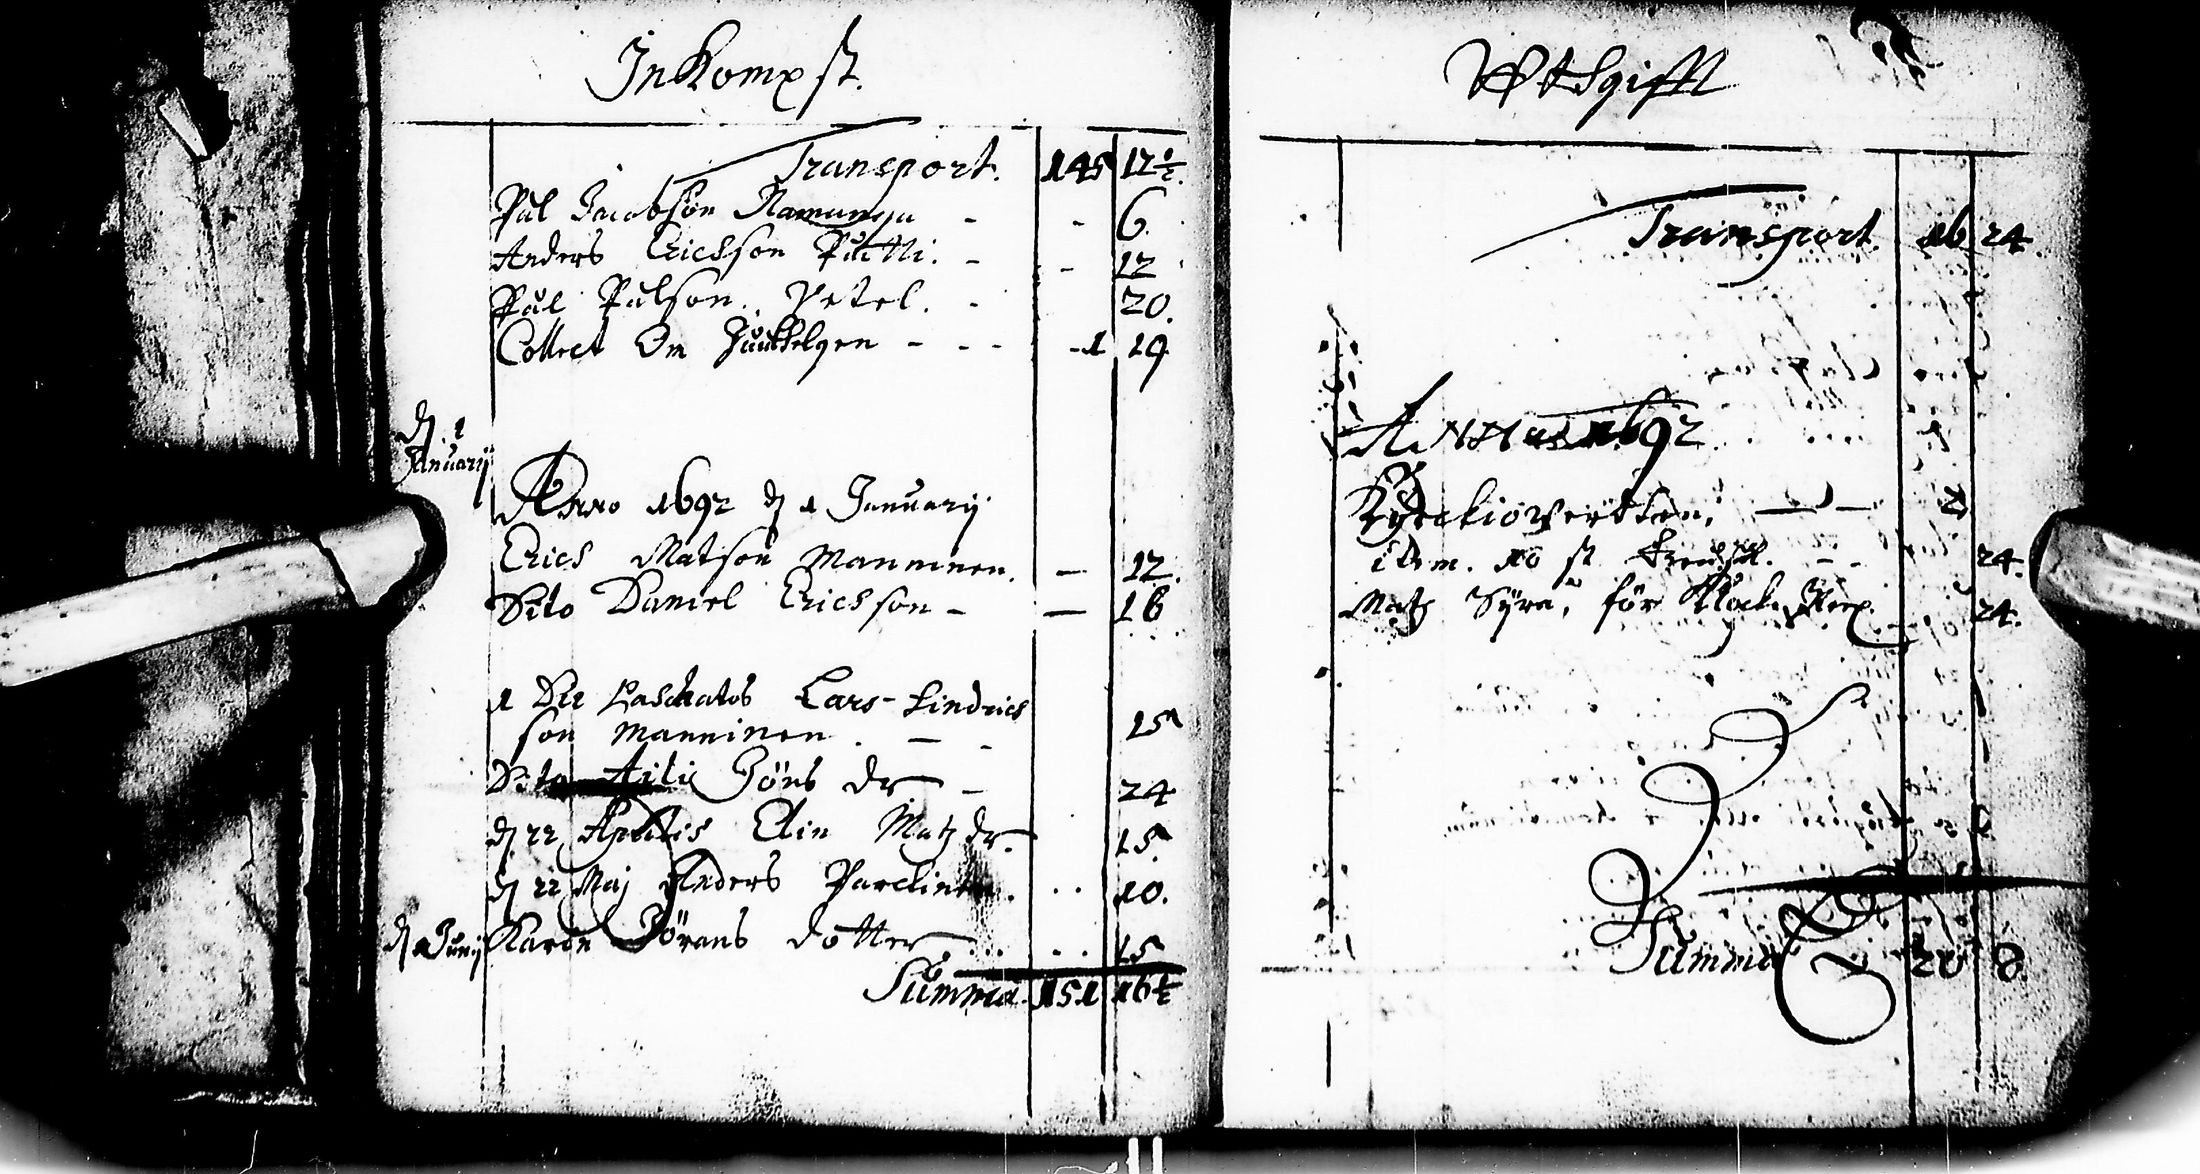 Inkompst.
Transport. 145 12½.
Pål Jacobson Ramunen - - 6.
Anders Erichson Putti. - - 12
Pål Pålson. Petel. - 20.
Collect Om Juuhelgen - - - - 1 19
d. 1
Januarij
Anno 1692 d 1 Januarij
Erich Matson Manninen. - 12.
Dito Daniel Erichson - - 16
1 Die Paschatos Lars Hindrich
son Manninen. - - 15
Dito Jöns dr - 24
d 22 Aprilis Elin Matz dr. 15.
d 22 Maj Anders Parckinen. . . 10.
d Junij Karin Jörans dotter . . 15
Summa. 151 16½
Uthgifft
Transport. 16 24.
Anno 1692.
2
Idem. 10 st - - 24.
Matz Syrä, för Klocke 24.
Summa 20 8.